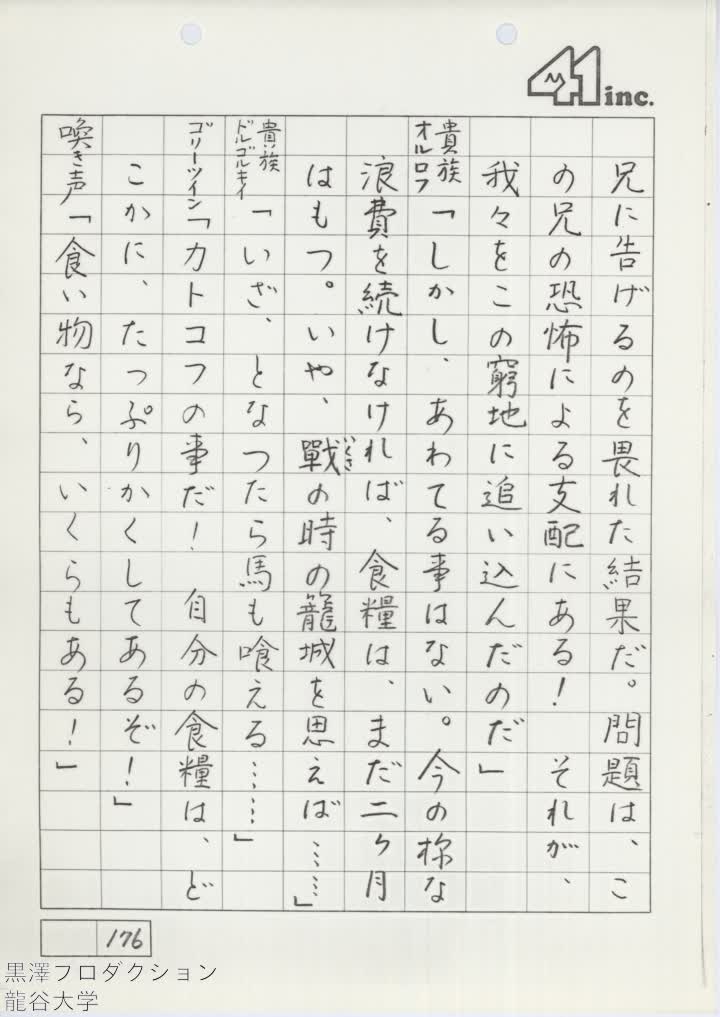 41 inc.
兄に告げるのを畏れた結果だ。問題は、こ
の兄の恐怖による支配にある！それが、
我々をこの窮地に追い込んだのだ」
貴族オルロフ「しかし、あわてる事はない。今の様な
浪費を続けなければ、食糧は、まだ二ヶ月
はもつ。いや、戰の時の籠城を思えば……」
いくさ
貴族ドルゴルキイ「いざ、となつたら馬も喰える……」
ゴリーツイン「カトコフの事だ！自分の食糧は、ど
こかに、たっぷりかくしてあるぞ！」
喚き声「食い物なら、いくらもある！」
176
黒澤プロダクション
龍谷大学